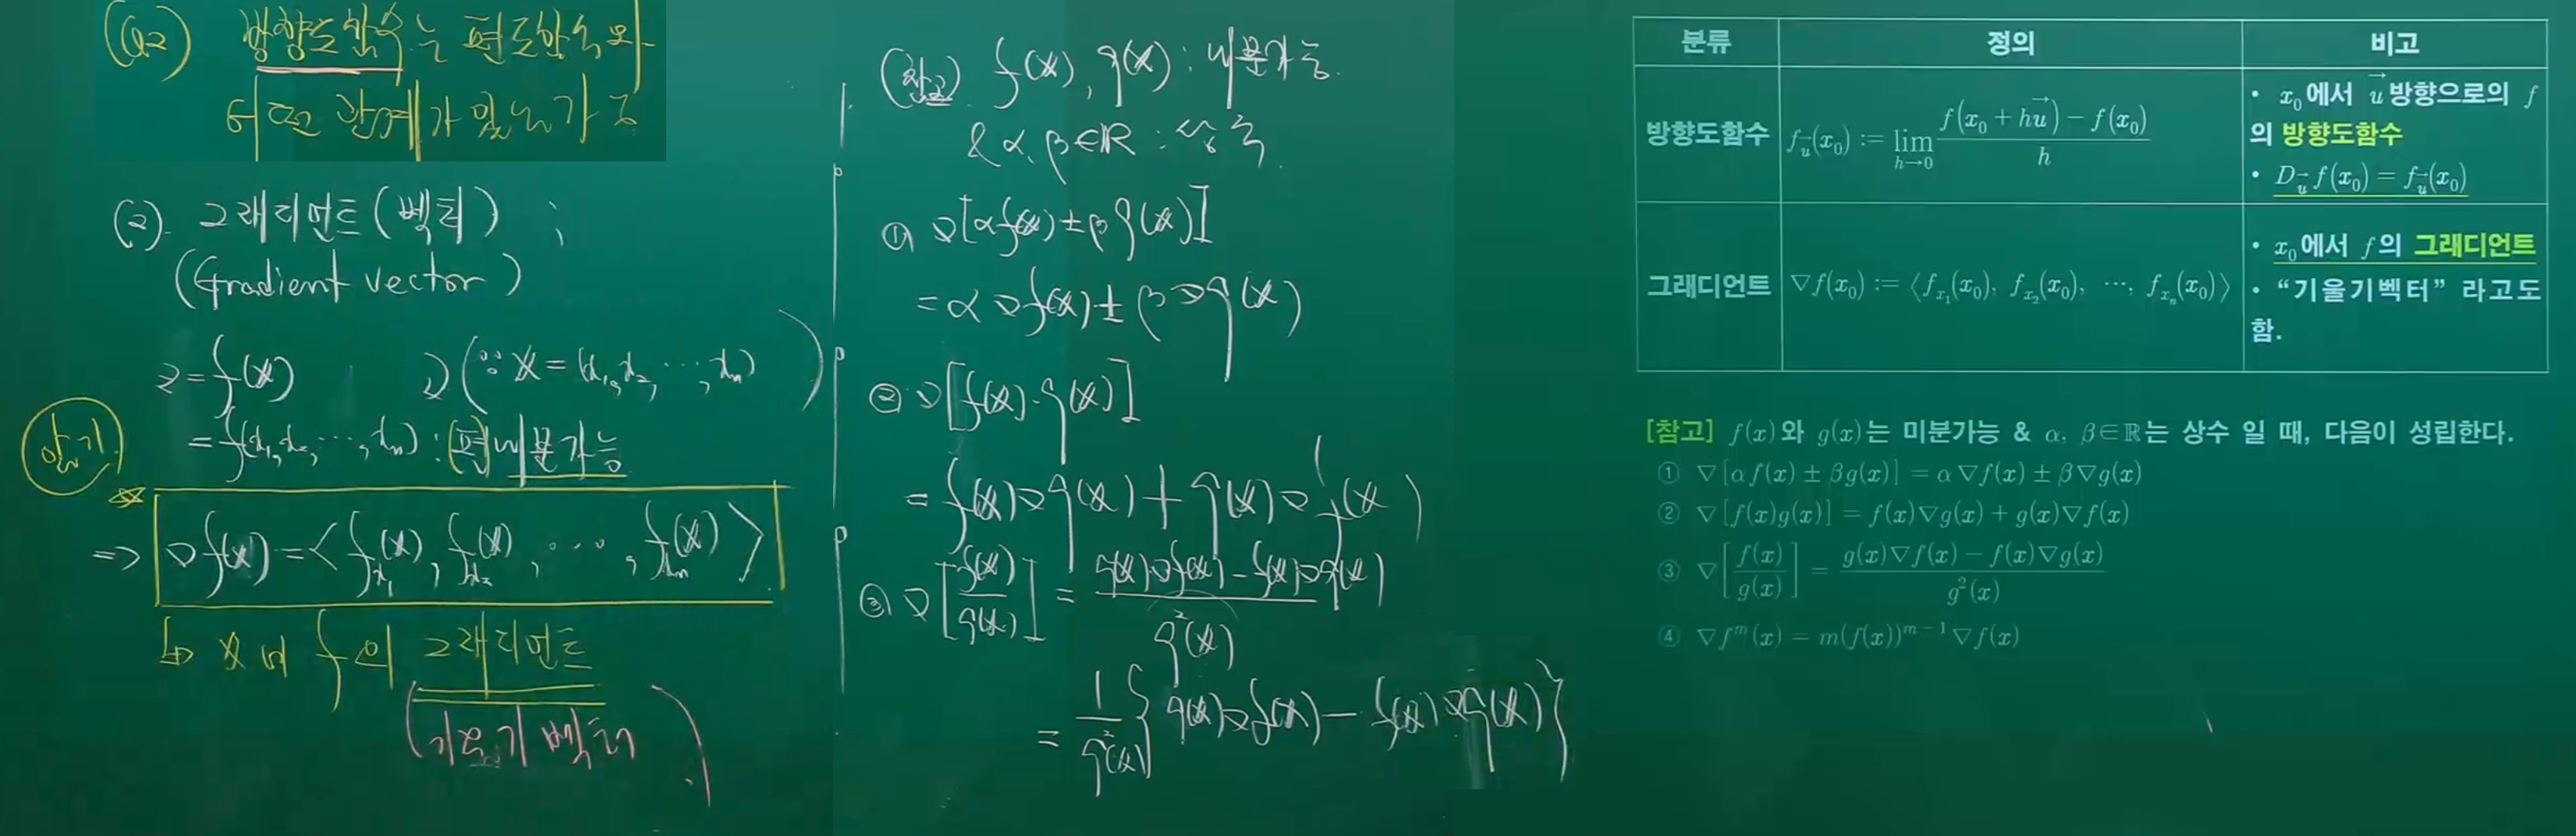 (Q2) 방향도함수는 편도함수와
어떤 관계가 있는가?
(2). 그래디언트(벡터) ;
(Gradient vector)
z=f(𝕏) (∵ 𝕏=(x₁, x₂, ⋯, xₙ))
=f(x₁, x₂, ⋯, xₙ) : (편)미분가능
암기
⇒ ∇f(𝕏)=<f_{x₁}(𝕏), f_{x₂}(𝕏), ⋯, f_{xₙ}(𝕏)>
↳ 𝕏에 f의 그래디언트
(기울기 벡터)
(참고) f(𝕏), g(𝕏) : 미분가능.
& α, β∈ℝ : 상수.
① ∇[αf(𝕏)±βg(𝕏)]
= α∇f(𝕏)±β∇g(𝕏)
② ∇[f(𝕏)·g(𝕏)]
= f(𝕏)∇g(𝕏)+g(𝕏)∇f(𝕏)
③ ∇[f(𝕏)/g(𝕏)] = (g(𝕏)∇f(𝕏)-f(𝕏)∇g(𝕏))/g²(𝕏)
= 1/g²(𝕏) {g(𝕏)∇f(𝕏)-f(𝕏)∇g(𝕏)}
분류 정의 비고
방향도함수 f_{u⃗}(x₀) := lim_{h→0} (f(x₀+hu⃗)-f(x₀))/h
• x₀에서 u⃗방향으로의 f
의 방향도함수
• D_{u⃗}f(x₀)=f_{u⃗}(x₀)
그래디언트 ∇f(x₀) := ⟨f_{x₁}(x₀), f_{x₂}(x₀), ⋯, f_{xₙ}(x₀)⟩
• x₀에서 f의 그래디언트
• “기울기벡터” 라고도
함.
[참고] f(x)와 g(x)는 미분가능 & α, β∈ℝ는 상수 일 때, 다음이 성립한다.
① ∇[αf(x)±βg(x)] = α∇f(x)±β∇g(x)
② ∇[f(x)g(x)] = f(x)∇g(x)+g(x)∇f(x)
③ ∇[f(x)/g(x)] = (g(x)∇f(x)-f(x)∇g(x))/g²(x)
④ ∇fᵐ(x) = m(f(x))ᵐ⁻¹∇f(x)